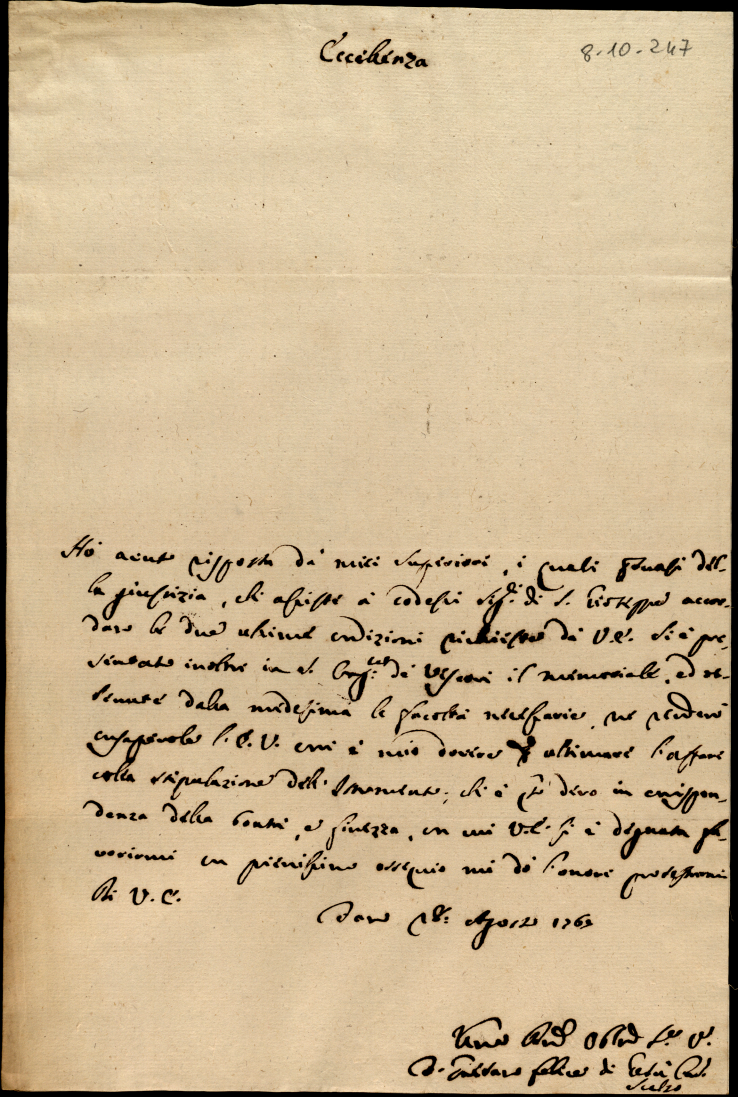 Eccellenza
8-10-247
Hò avuto risposta da miei Superiori, i quali del-
la giustizia, che assiste à codesti Sig.ri di S. Giuseppe accor-
dano le due ultime condizioni richieste da V.E. Si è pre-
sentato inoltre in S. Cong.ne dè Vescovi il memoriale, ed ot-
tenute dalla medesima le facoltà necessarie, ne renderò
consapevole l'E.V. com'è mio dovere ultimare l'affare
colla stipulazione dell'Istromento; che è in corrispon-
denza della bontà, e finezza, con cui V.E. si è degnata fa-
vorirmi con pienissimo ossequio mi dò l'onore protestarmi
Di V.E.
Agosto 1763
Umo Obblo
D. Felice di Gesù